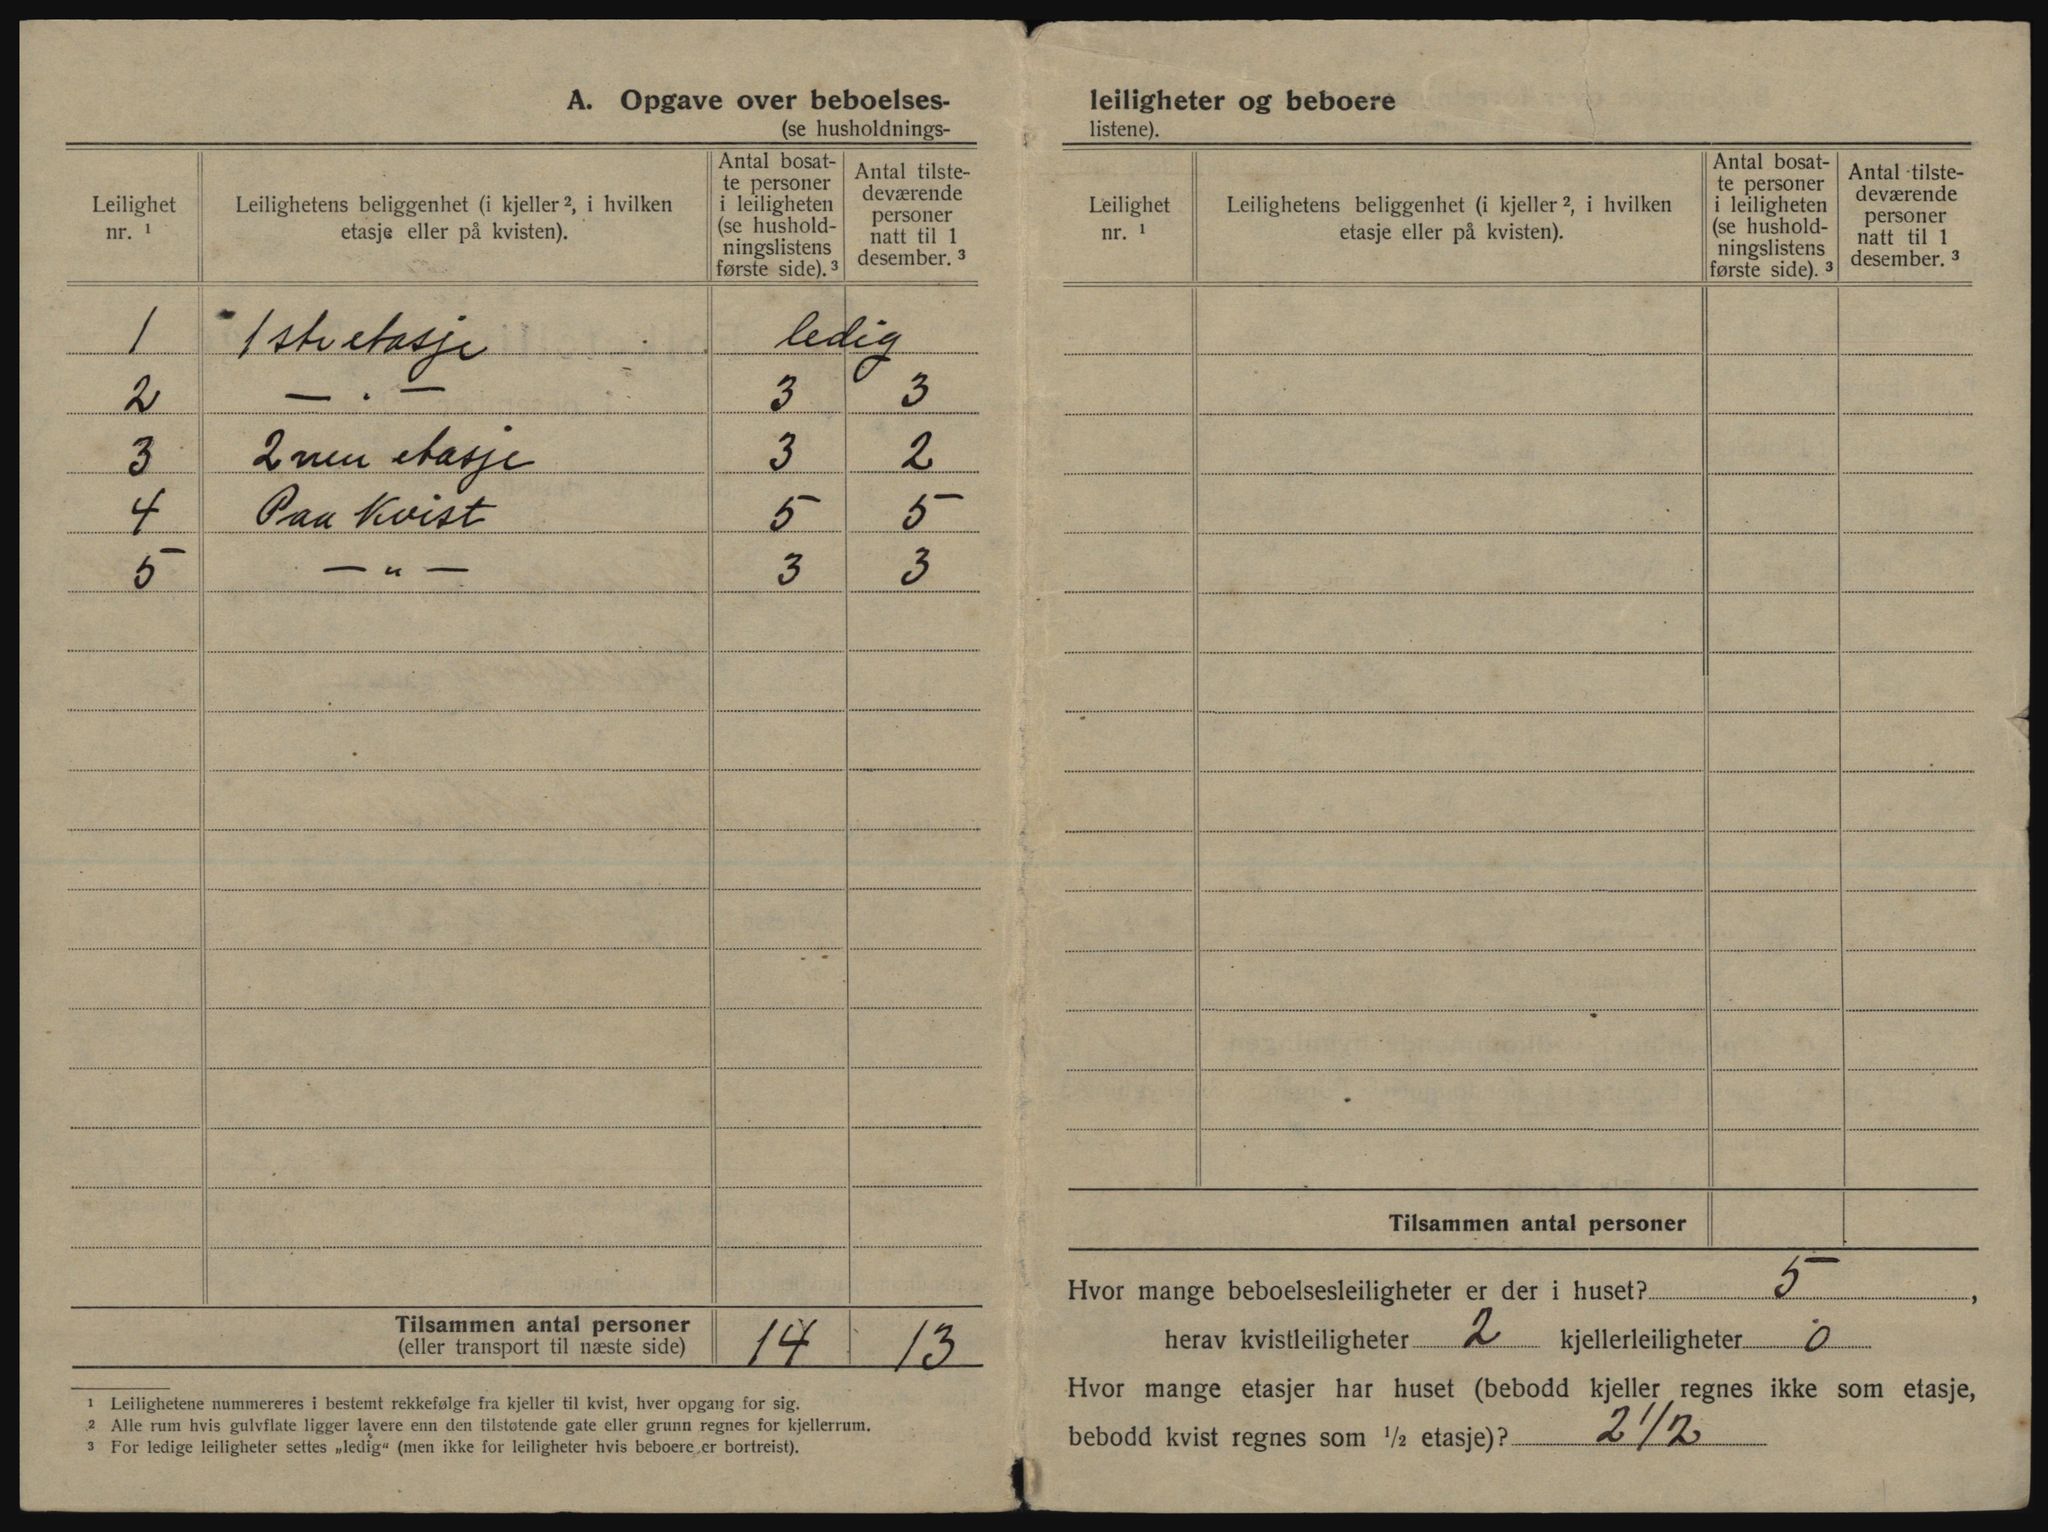 A. Opgave over beboelses-
(se husholdnings-
Leilighet
nr. ¹
Leilighetens beliggenhet (i kjeller ², i hvilken
etasje eller på kvisten).
Antal bosat-
te personer
i leiligheten
(se hushold-
ningslistens
første side). ³
Antal tilste-
deværende
personer
natt til 1
desember. ³
1 1ste etasje ledig
2 — . — 3 3
3 2nen etasje 3 2
4 Paa Kvist 5 5
5 — „ — 3 3
Tilsammen antal personer 14 13
(eller transport til næste side)
¹ Leilighetene nummereres i bestemt rekkefølge fra kjeller til kvist, hver opgang for sig.
² Alle rum hvis gulvflate ligger lavere enn den tilstøtende gate eller grunn regnes for kjellerrum.
³ For ledige leiligheter settes „ledig“ (men ikke for leiligheter hvis beboere er bortreist).
leiligheter og beboere
listene).
Leilighet
nr. ¹
Leilighetens beliggenhet (i kjeller ², i hvilken
etasje eller på kvisten).
Antal bosat-
te personer
i leiligheten
(se hushold-
ningslistens
første side). ³
Antal tilste-
deværende
personer
natt til 1
desember. ³
Tilsammen antal personer
Hvor mange beboelsesleiligheter er der i huset? 5,
herav kvistleiligheter 2 kjellerleiligheter 0
Hvor mange etasjer har huset (bebodd kjeller regnes ikke som etasje,
bebodd kvist regnes som ½ etasje)? 2 1/2